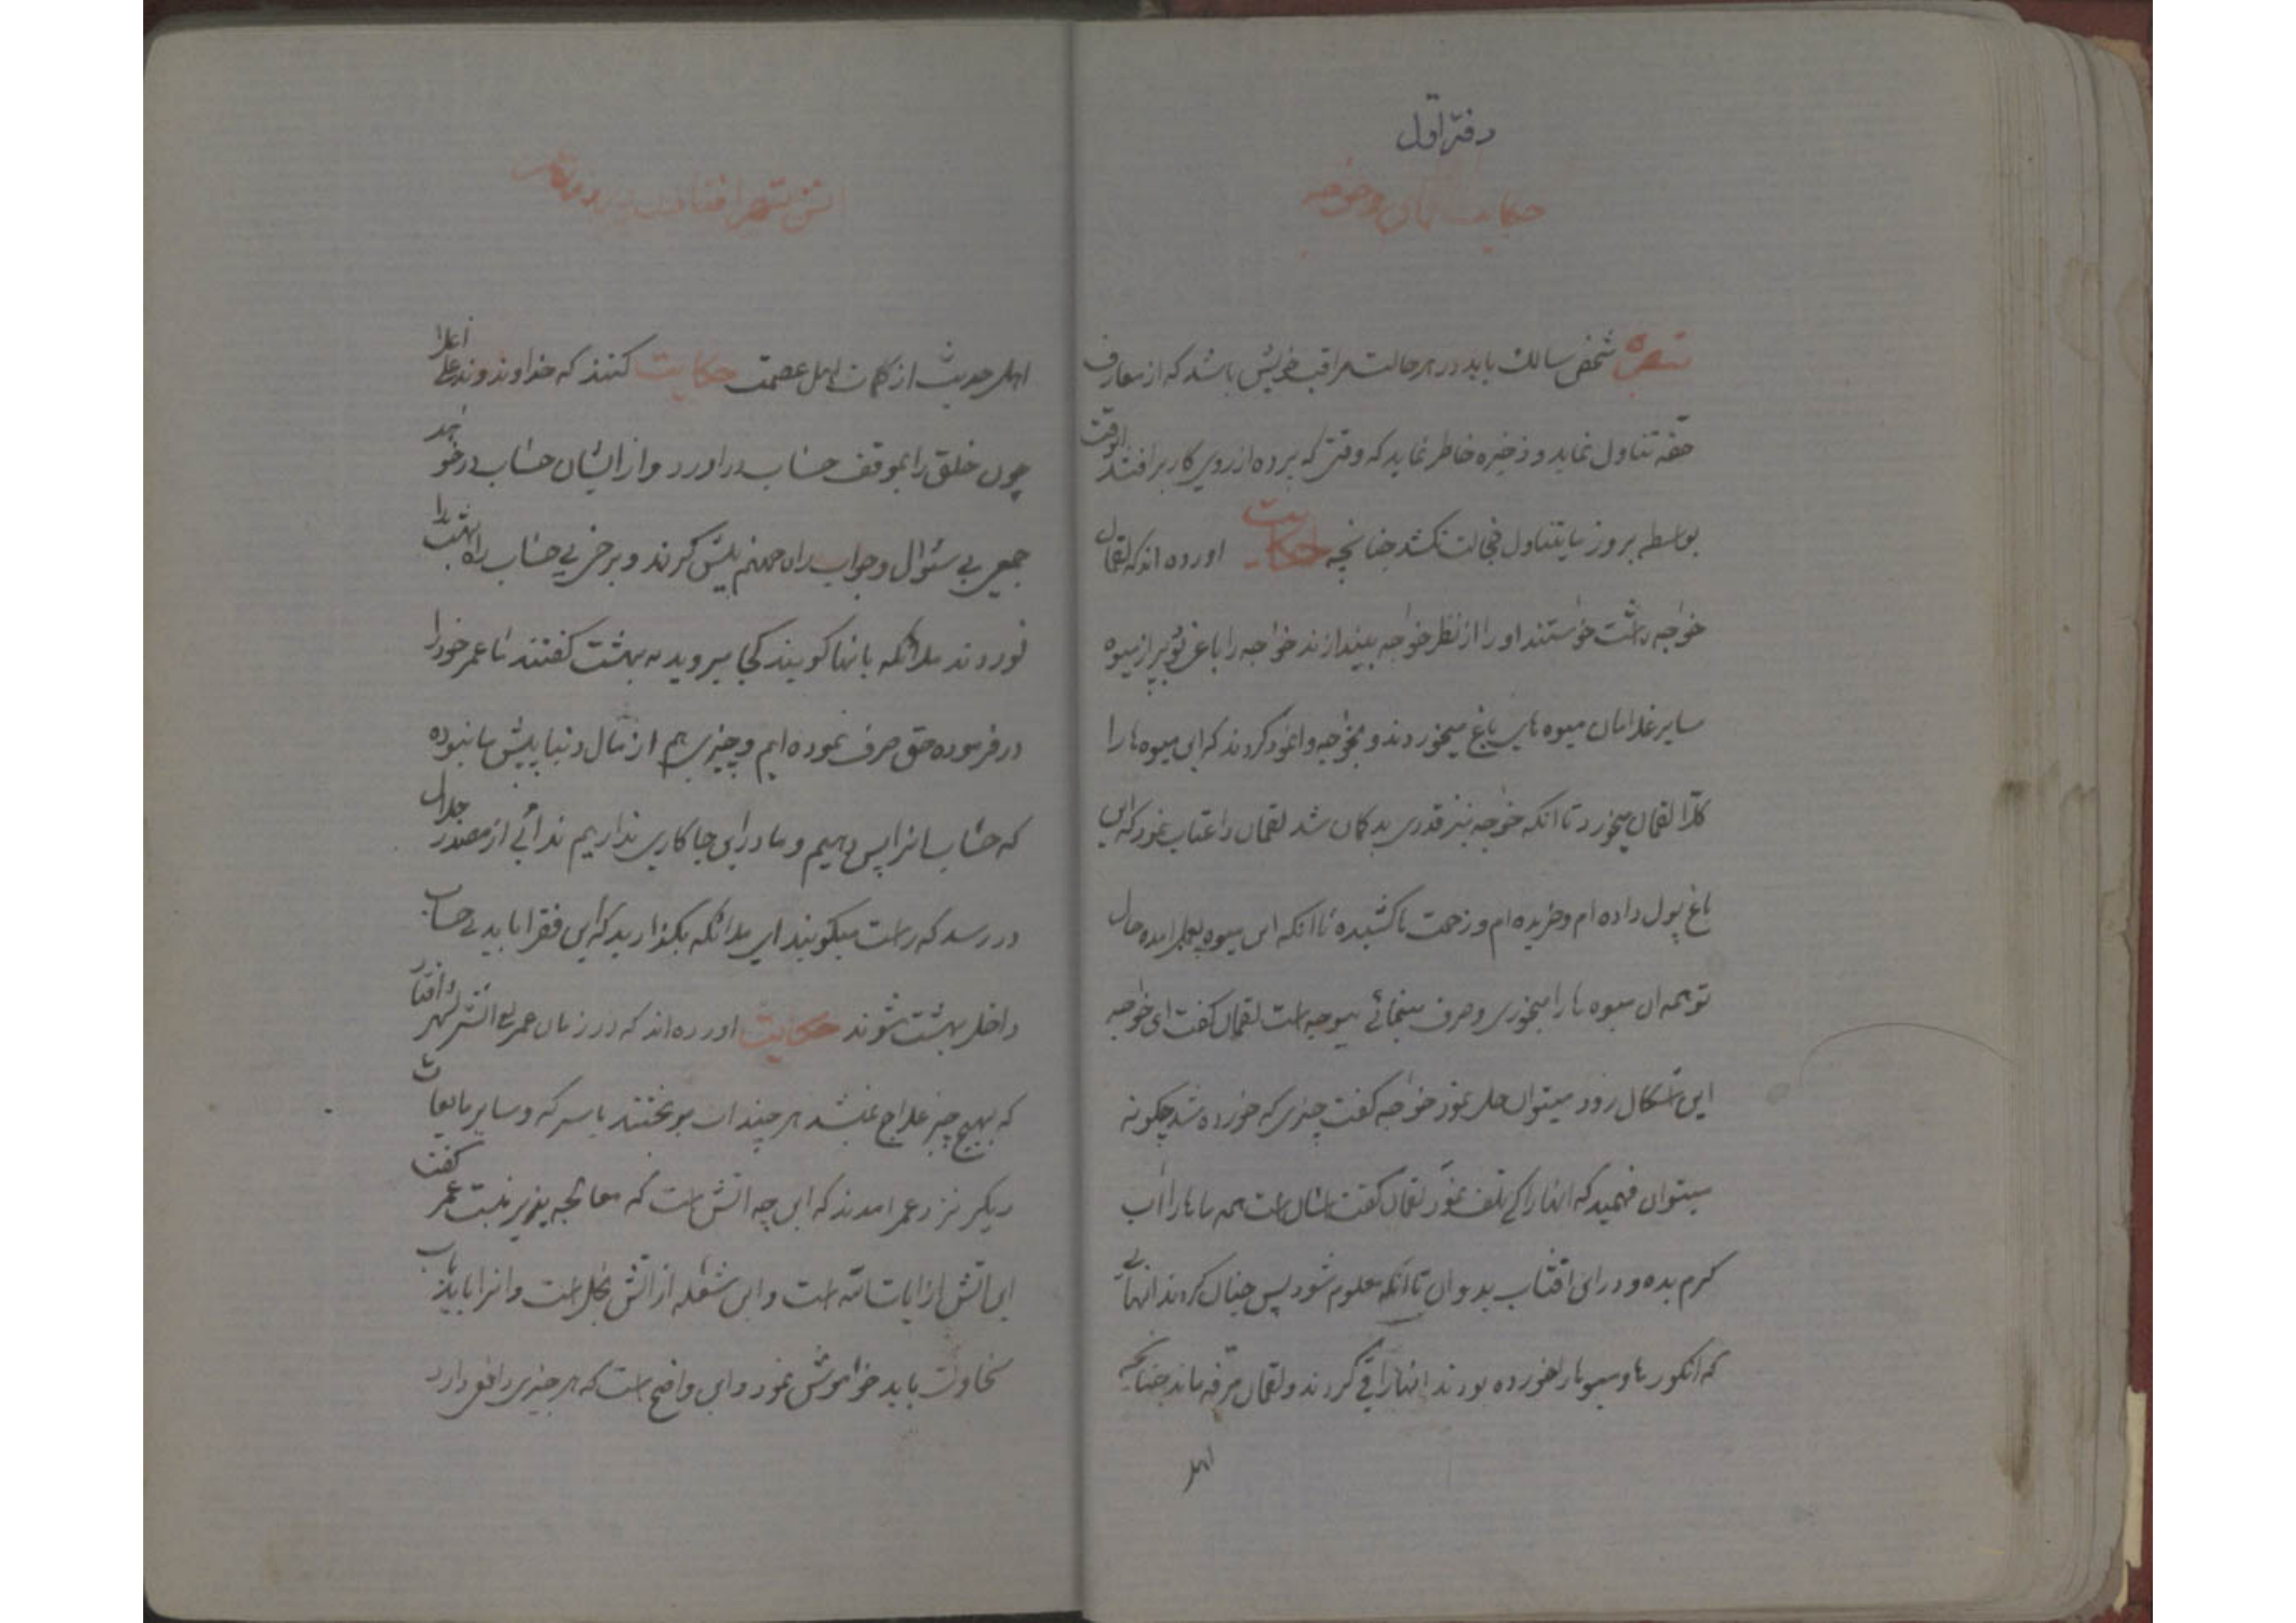 دفتر اول
حکایت لقمان و خواجه
تبصره شخص سالک باید در هر حالت مراقب خویش باشد که از معارف
حقه تناول نماید و ذخیره خاطر نماید که وقتی که پرده از روی کار برافتد انوقت
بواسطه بروز تناول خجالت نکشد چنانچه حکایت اورده اند که لقمان
خواجه داشت خواستند او را از نظر خواجه بیندازند خواجه را باغی بود پر از میوه
سایر غلامان میوه های باغ میخوردند و بخواجه وانمود کردند که این میوه ها را
کلا لقمان میخورد تا انکه خواجه نیز قدری بد کمان شد لقمان را عتاب نمود که این
باغ پول داده ام و خریده ام و زحمت ها کشیده تا انکه این میوه بعمل امده حال
تو همه ان میوه ها را میخوری و صرف مینمائی بیوجه است لقمان کفت ای خواجه
این اشکال زود میتوان حل نمود خواجه کفت چیزی که خورده شد چکونه
میتوان فهمید که انها را کی تلف نمود لقمان کفت اسان است همه ماها را اب
کرم بده و در این افتاب بدوان تا انکه معلوم شود پس چنان کردند انهائی
که انکورها و میوها را خورده بودند انها را قی کردند و لقمان مرفه ماند چنانچه
اهل
اتش بشهر افتادن در زمان عمر
اهل حدیث از کلمات اهل عصمت حکایت کنند که خداوند وند علی اعلا
چون خلق را بموقف حساب دراورد و از ایشان حساب در خواهد
جمعی بی سئوال و جواب راه جهنم پیش کرند و برخی بی حساب راه بهشت را
نوردند ملائکه بانها کویند کجا میروید به بهشت کفتند ما عمر خود را
در فرموده حق صرف نموده ایم و چیزی هم از مال دنیا پیش ما نبوده
که حساب انرا پس دهیم و ما در این جا کاری نداریم ندائی از مصدر جلال
در رسد که راست میکویند ای ملائکه بکذارید که این فقرا باید بی حساب
داخل بهشت شوند حکایت اورده اند که در زمان عمر اتش بشهر افتاد
که بهیچ چیز علاج نمیشد هر چند اب بریختند با سرکه و سایر مایعات
دیکر نزد عمر امدند که این چه اتش است که معالجه پذیر نیست عمر کفت
این اتش از ایات الله است و این شعله از اتش بخل است و انرا باید باب
سخاوت باید خواموش نمود و این واضح است که هر چیزی دافع دارد